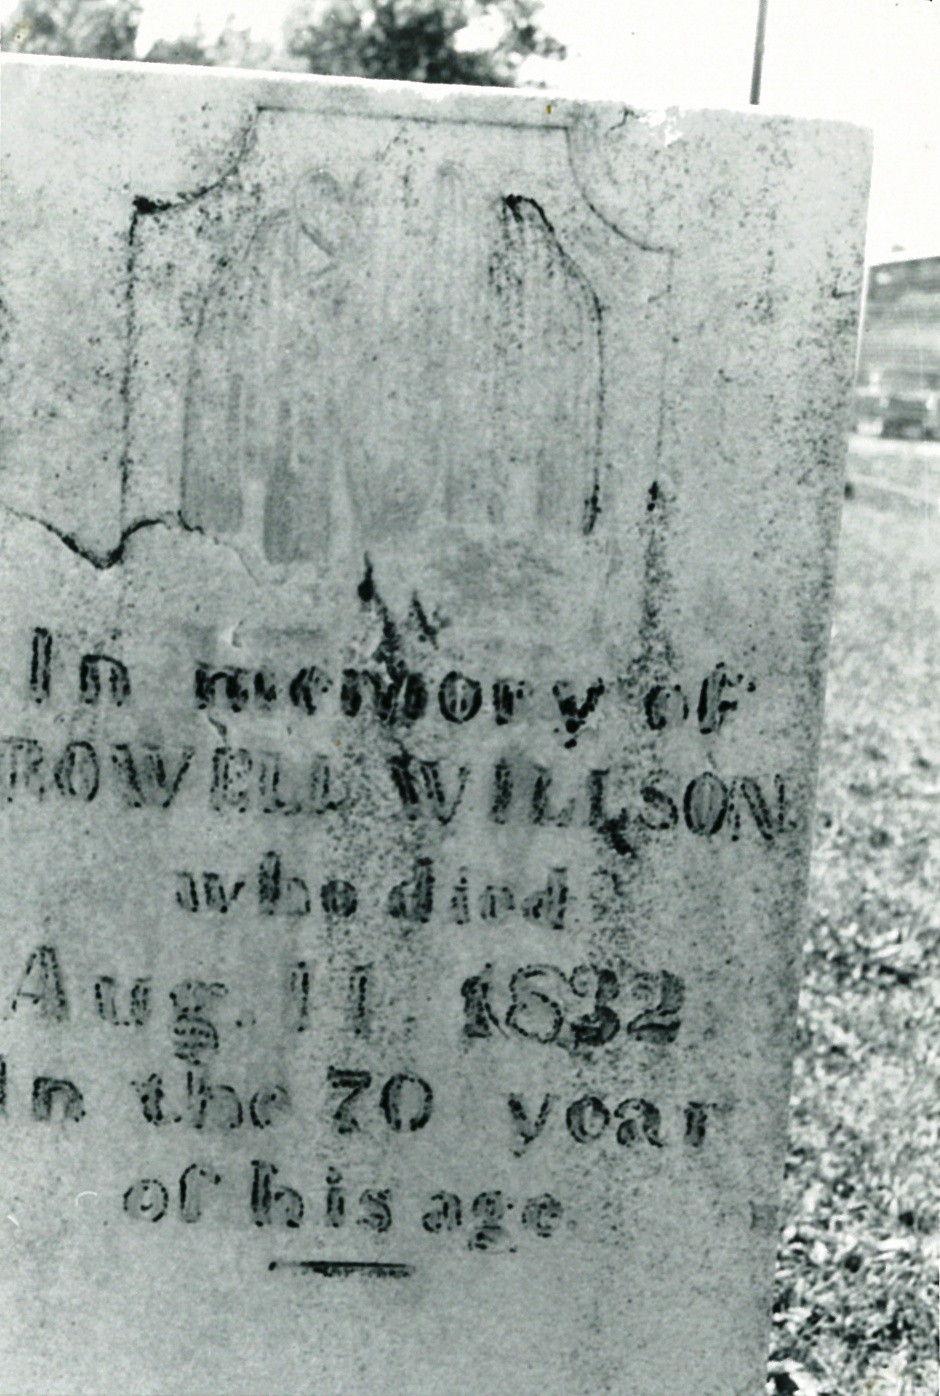 In memory of
ROWELL WILLSON
who died
Aug. 11 1832
In the 70 year
of his age